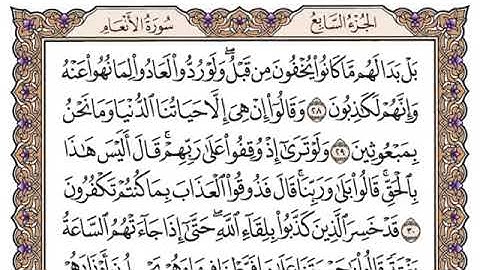 الجزء السابع سورة الأنعام
بَلْ بَدَا لَهُم مَّا كَانُوا۟ يُخْفُونَ مِن قَبْلُ ۖ وَلَوْ رُدُّوا۟ لَعَادُوا۟ لِمَا نُهُوا۟ عَنْهُ
وَإِنَّهُمْ لَكَـٰذِبُونَ ٢٨ وَقَالُوٓا۟ إِنْ هِىَ إِلَّا حَيَاتُنَا ٱلدُّنْيَا وَمَا نَحْنُ
بِمَبْعُوثِينَ ٢٩ وَلَوْ تَرَىٰٓ إِذْ وُقِفُوا۟ عَلَىٰ رَبِّهِمْ ۚ قَالَ أَلَيْسَ هَـٰذَا
بِٱلْحَقِّ ۚ قَالُوا۟ بَلَىٰ وَرَبِّنَا ۚ قَالَ فَذُوقُوا۟ ٱلْعَذَابَ بِمَا كُنتُمْ تَكْفُرُونَ
٣٠ قَدْ خَسِرَ ٱلَّذِينَ كَذَّبُوا۟ بِلِقَآءِ ٱللَّهِ ۖ حَتَّىٰٓ إِذَا جَآءَتْهُمُ ٱلسَّاعَةُ